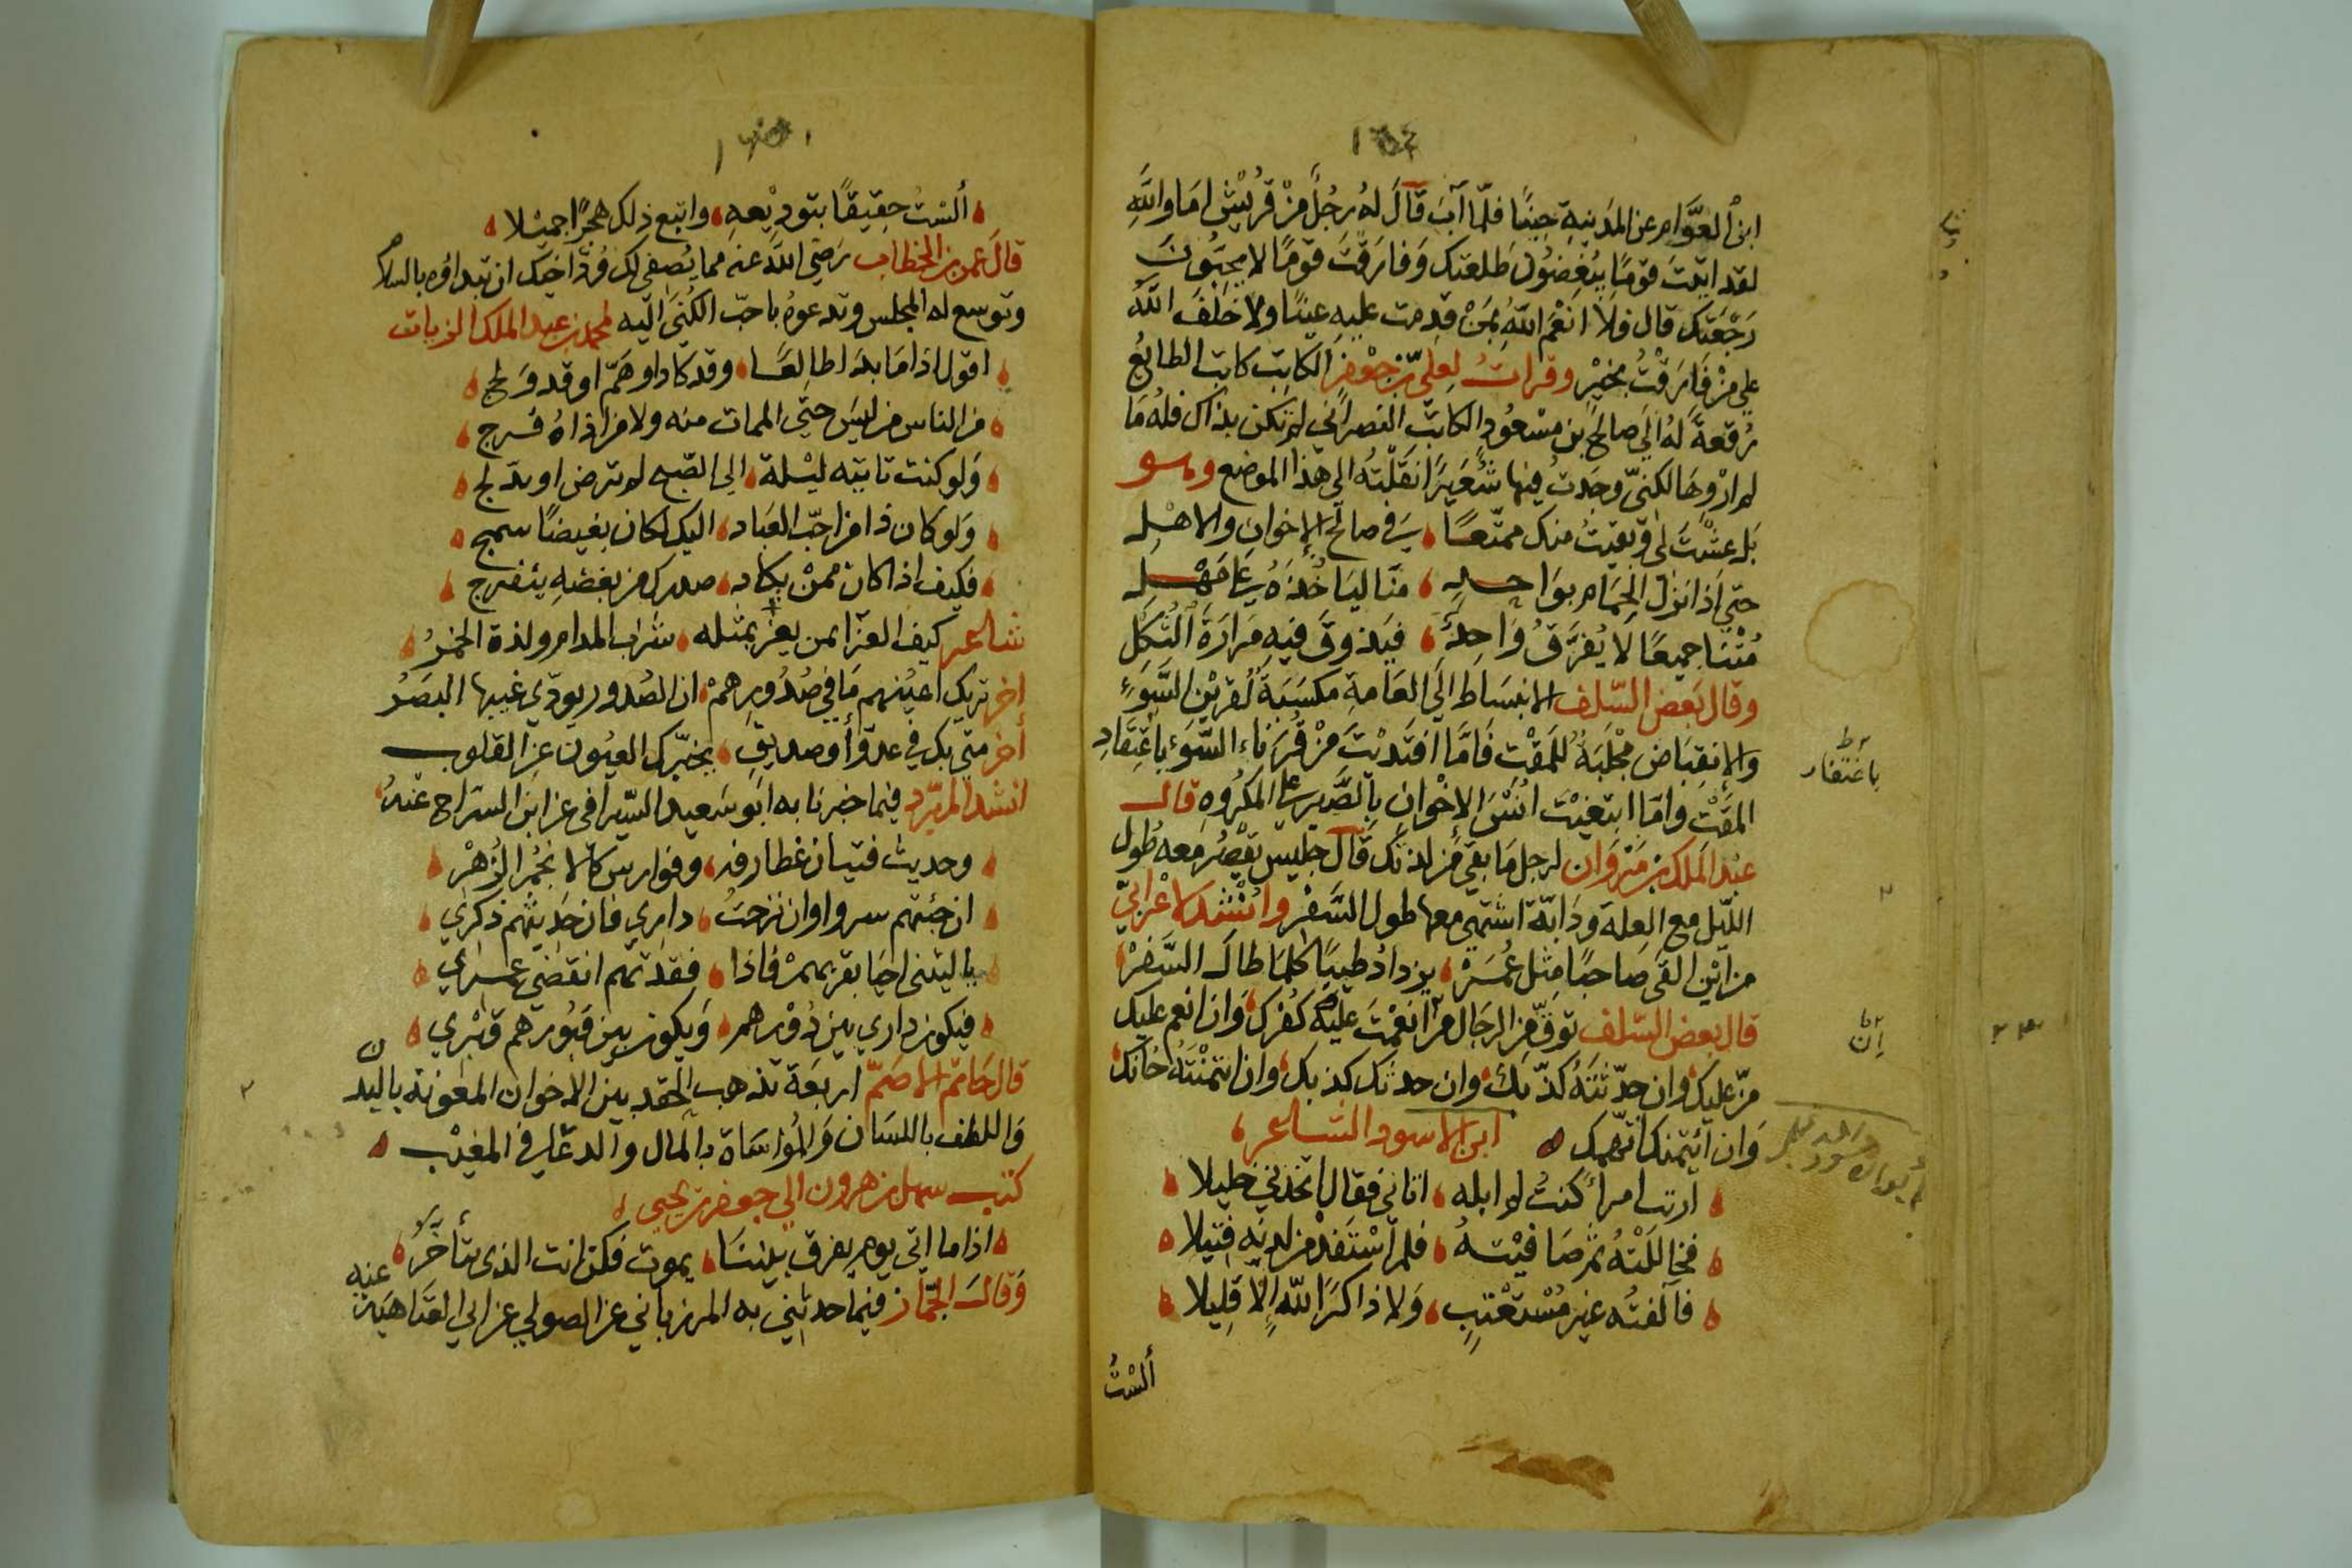 ابن العوّام عن المدينة حينًا فلمّا آب قال له رجل من قريش اما والله
لقد اتيت قومًا يبغضون طلعتك وفارقت قومًا لا يحبون
رجعتك قال فلا انعم الله بمن قدمت عليه عينًا ولا خلف الله
على من فارقت بخير وقرات لعلي بن جعفر الكاتب كاتب الطائع
رقعة له الى صالح بن مسعود الكاتب النصراني لم تكن بذاك فله ما
لم اروها لكنني وجدت فيها شعيرًا نقلته الى هذا الموضع وهو
بل عشت لي وبقيت منك ممتّعًا في صالح الإخوان والاهل
حتى اذا نزل الحمام بواحد منا ليأخذه على مهل
متنا جميعًا لا يفرّق واحد فيذوق فيه مرارة الثكل
وقال بعض السّلف الانبساط الى العامة مكسبة لقرين السّوء
والانقباض مجلبة للمقت فامّا افتديت من قرناء السّوء باعتقاد
باغتفار
المقت وامّا ابتغيت انس الإخوان بالصّبر على المكروه قال
عبد الملك بن مروان لرجل ما بقي من لذتك قال جليس يقصر معه طول
الليل مع العلة ودابّة اشتهي معها طول السّفر وانشد لاعرابيّ
من اين القى صاحبًا مثل عمر يزداد طيبًا كلما طال السّفر
قال بعض السّلف توقّ من الرجال من ان انعمت عليه كفرك وان انعم عليك
إن
منّ عليك وان حدّثته كذّبك وان حدثك كذبك وان ائتمنته خانك
وان ائتمنك اتّهمك ابن الاسود الشاعر
اريت امرأ كنت لم ابله اتاني فقال اتخذني خليلا
فخاللته ثم صافيته فلم استفد من لديه فتيلا
فآلفته غير مستعتب ولا ذاكر الله إلا قليلا
ألست
ألست حقيقًا بتوديعه واتبع ذلك هجرًا جميلا
قال عمر بن الخطاب رضي الله عنه مما يصفي لك ودّ اخيك ان تبداؤه بالسلام
وتوسع له المجلس وتدعوه باحبّ الكنى اليه لمحمد بن عبد الملك الزيات
اقول اذا ما بدا طالعًا وقد كاد او همّ او قد ولج
من الناس من ليس حتى الممات منه ولا من اذاه فرج
ولو كنت تابيته ليلة الى الصّبح لم ترض او يدّلج
ولو كان ذا من احبّ العباد اليك لكان بغيضًا سمج
فكيف اذا كان ممن يكاد صدرك من بغضه ينفرج
شاعر كيف العزا بمن يعز بمثله شراب المدام ولذة الخمر
اخر تريك اعينهم ما في صدورهم ان الصدور يودي غيبها البصر
أخر متى يك في عدوّ أو صديق يخبّرك العيون عن القلوب
انشد المبرّد فيما خبرنا به ابو سعيد السّيرافي عن ابن السّراج عنه
وحديث فتيان غطارفه وفوارس كالانجم الزهر
ان جئتهم سروا وان نزحت داري فان حديثهم ذكري
يا ليتني احيا بقربهم فاذا فقدتهم انقضى عمري
فيكون داري بين دورهم ويكون بين قبورهم قبري
قال حاتم الاصمّ اربعة تذهب الحقد بين الاخوان المعونة باليد
واللطف باللسان والمؤاساة بالمال والدعا في المغيب
كتب سهل بن هرون الى جعفر بن يحيى
اذا ما اتى يوم يفرق بيننا بموت فكن انت الذي تتأخّر
وقال الجمّاز فيما حدثني به المرزباني عن الصولي عن ابي العتاهية عنه